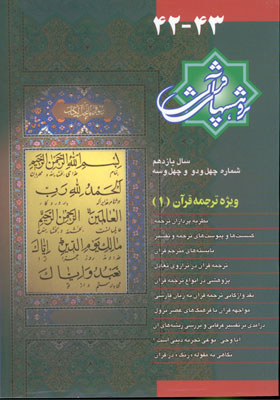 ۴۲-۴۳
پژوهشهای قرآنی
سال یازدهم
شماره چهل‌ودو و چهل‌وسه
ویژه ترجمه قرآن (۱)
نظریه پردازان ترجمه
گسست‌ها و پیوست‌های ترجمه و تفسیر
بایسته‌های مترجم قرآن
ترجمه قرآن در ترازوی تعادل
پژوهشی در انواع ترجمه قرآن
نقد واژگانی ترجمه قرآن به زبان فارسی
مواجهه قرآن با فرهنگ‌های عصر نزول
درآمدی بر تفسیر عرفانی و بررسی ریشه‌های آن
آیا وحی نوعی تجربه دینی است؟
نگاهی به مقوله «رنگ» در قرآن
بسم الله الرحمن الرحيم
الحمد لله رب
العالمين الرحمن الرحيم
مالك يوم الدين إياك
نعبد وإياك